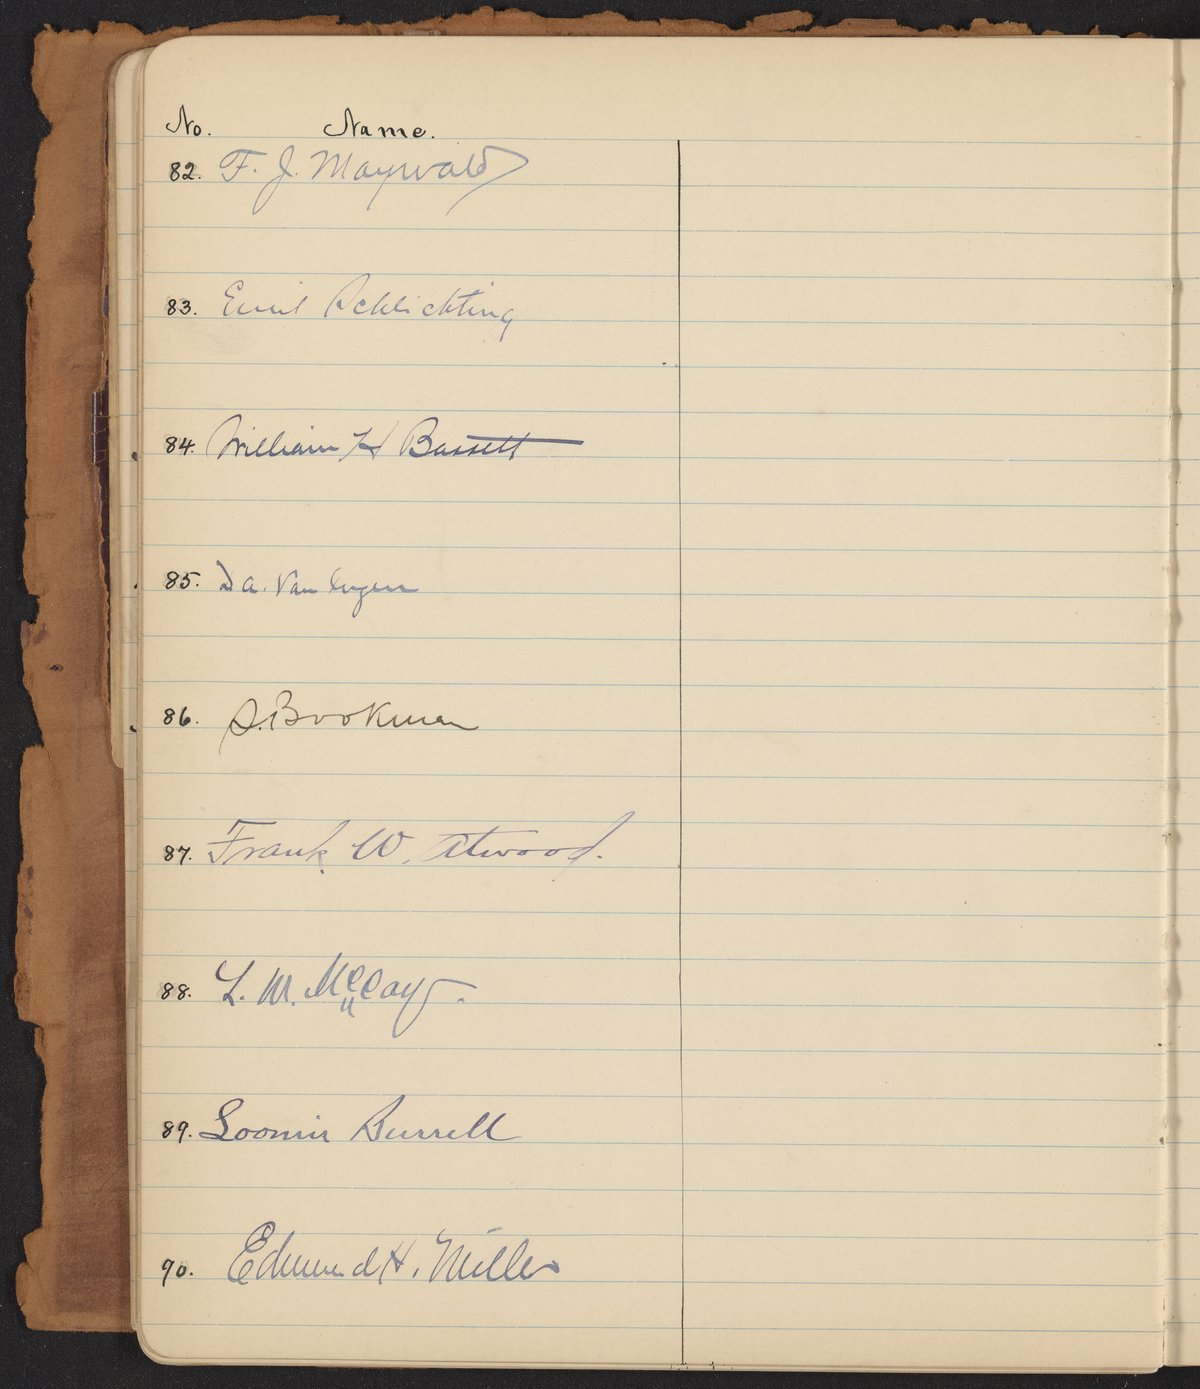 No. Name.
82. F. J. Maywald
83. Emil Schlichting
84. William H Bassett
85. D A. Van Ingen
86. S. Bookman
87. Frank W. Atwood.
88. L. M. McCay.
89. Loomis Burrell
90. Edmund H. Miller